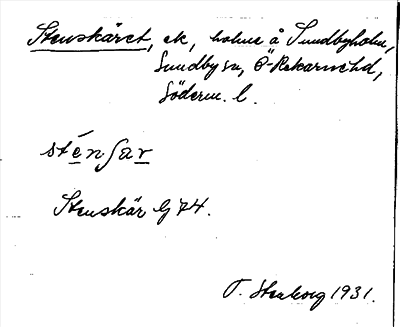 Stenskäret, ek, holme å Sundbyholm,
Sundby sn, Ö-Rekarne hd,
Söderm. l.
sténʃar
Stenskär G 74.
T. Stenborg 1931.